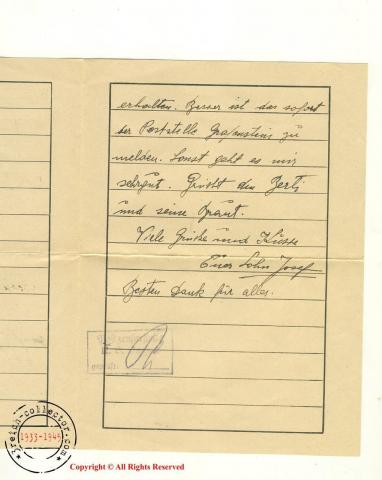 erhalten. Besser ist das sofort
der Poststelle Grafenstein zu
melden. Sonst geht es mir
sehrgut. Grüsst den Bertl
und seine Braut.
Viele Grüsse und Küsse
Euer Sohn Josef
Besten Dank für alles.
3reich-collector.com
1933-1945
Copyright © All Rights Reserved